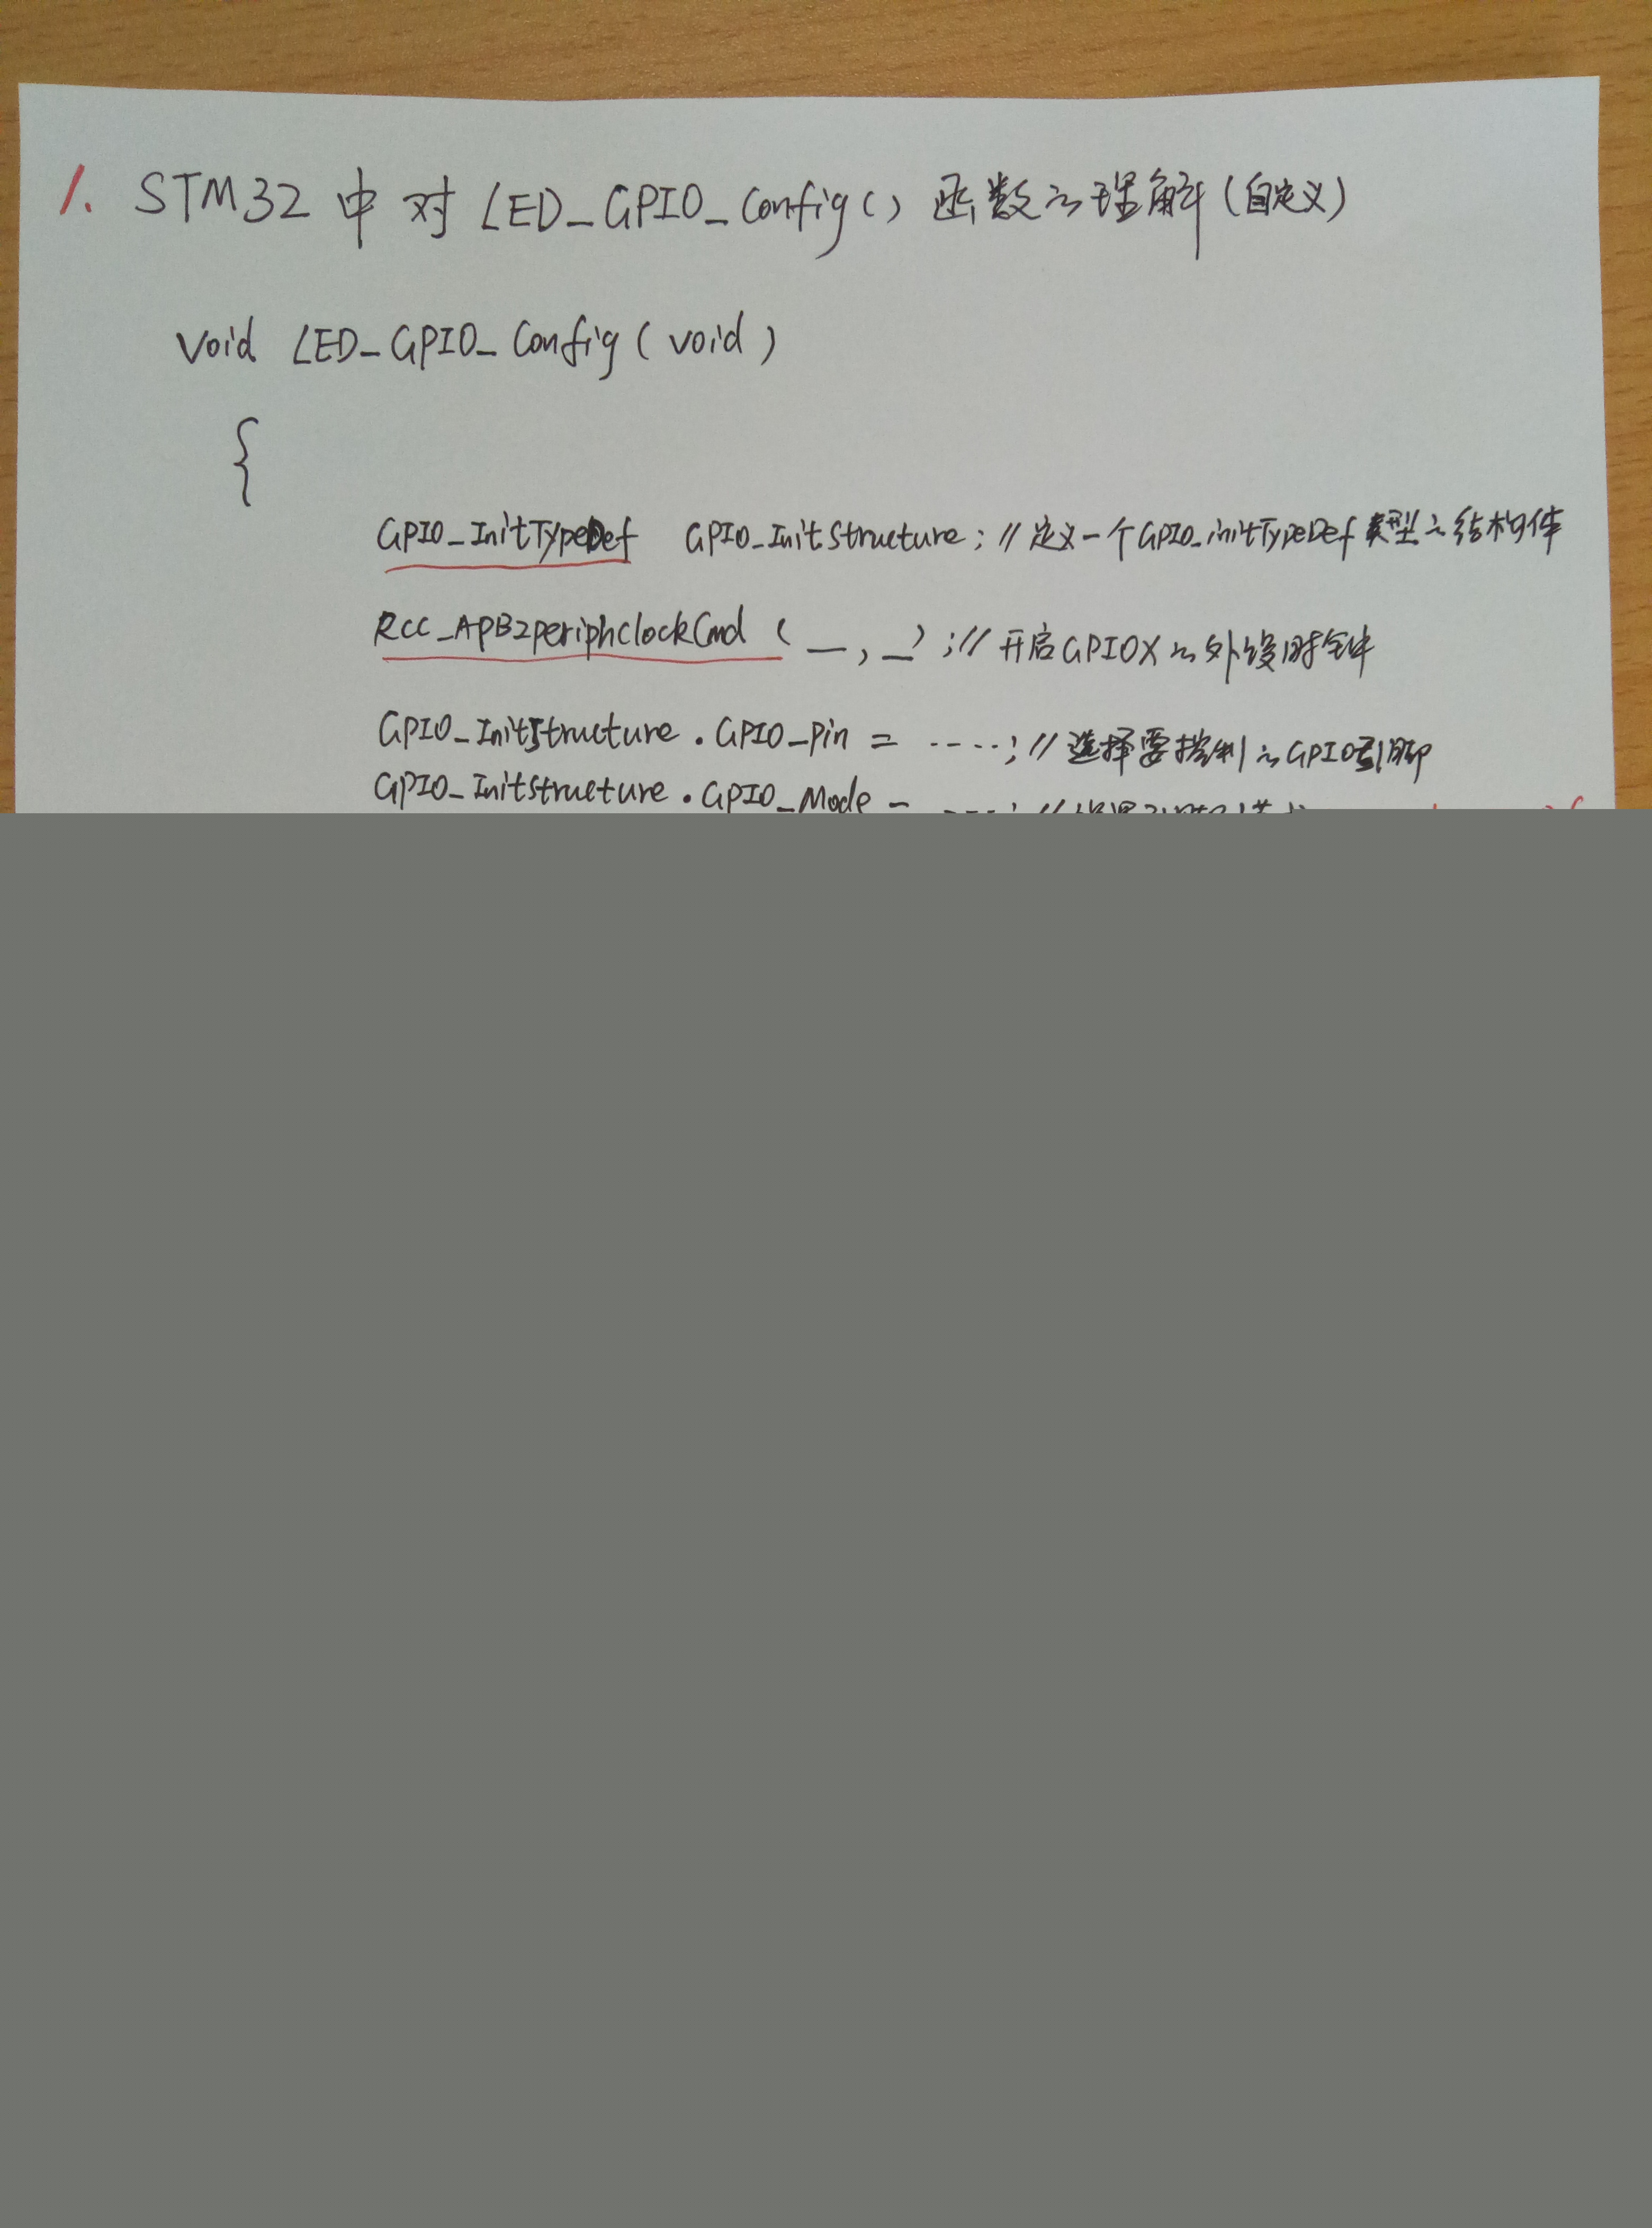 1. STM32 中 对 LED_GPIO_Config() 函数之理解(自定义)
void LED_GPIO_Config(void)
{
GPIO_InitTypeDef GPIO_InitStructure; // 定义一个GPIO_initTypeDef 类型之结构体
RCC_APB2periphclockCmd (__,__); // 开启GPIOX之外设时钟
GPIO_InitStructure.GPIO_Pin = ----; // 选择要控制之GPIO引脚
GPIO_Initstructure.GPIO_Mode